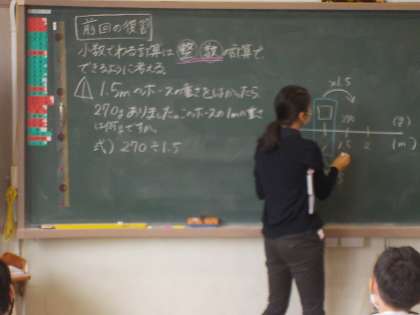 前回の復習
小数でわる計算は整数の計算で、
できるように考える。
1.5mのホースの重さをはかったら
270gありました。このホースの1mの重さ
は何gですか。
式) 270÷1.5
×1.5
□
270
(g)
1
1.5
2
(m)